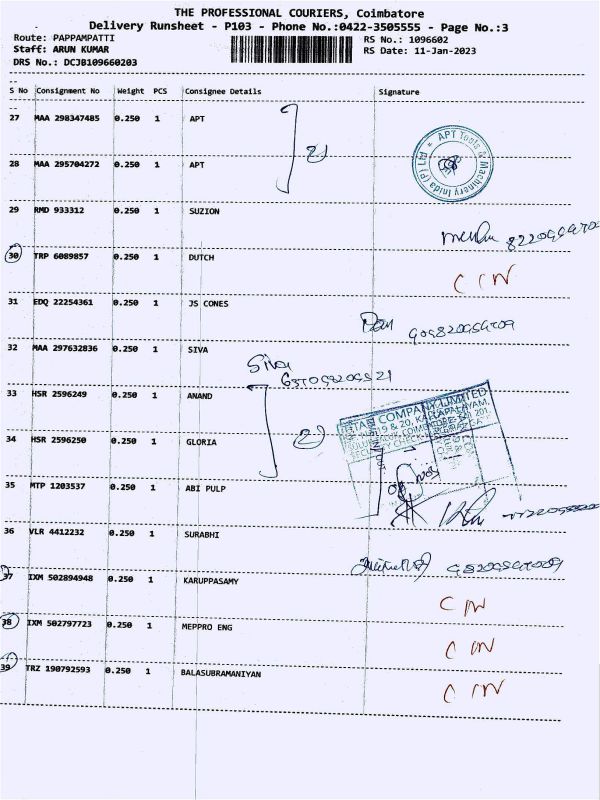 THE PROFESSIONAL COURIERS, Coimbatore
Delivery Runsheet - P103 - Phone No.:0422-3505555 - Page No.:3
Route: PAPPAMPATTI RS No.: 1096602
Staff: ARUN KUMAR RS Date: 11-Jan-2023
DRS No.: DCJB109660203
S No Consignment No Weight PCS Consignee Details Signature
27 MAA 298347485 0.250 1 APT
28 MAA 295704272 0.250 1 APT
APT Tools & Machinery Inida (P) Ltd
29 RMD 933312 0.250 1 SUZION
30 TRP 6089857 0.250 1 DUTCH
31 EDQ 22254361 0.250 1 JS CONES
32 MAA 297632836 0.250 1 SIVA
Siva
33 HSR 2596249 0.250 1 ANAND
COMPANY LIMITED
34 HSR 2596250 0.250 1 GLORIA
35 MTP 1203537 0.250 1 ABI PULP
36 VLR 4412232 0.250 1 SURABHI
37 IXM 502894948 0.250 1 KARUPPASAMY
38 IXM 502797723 0.250 1 MEPPRO ENG
39 TRZ 190792593 0.250 1 BALASUBRAMANIYAN